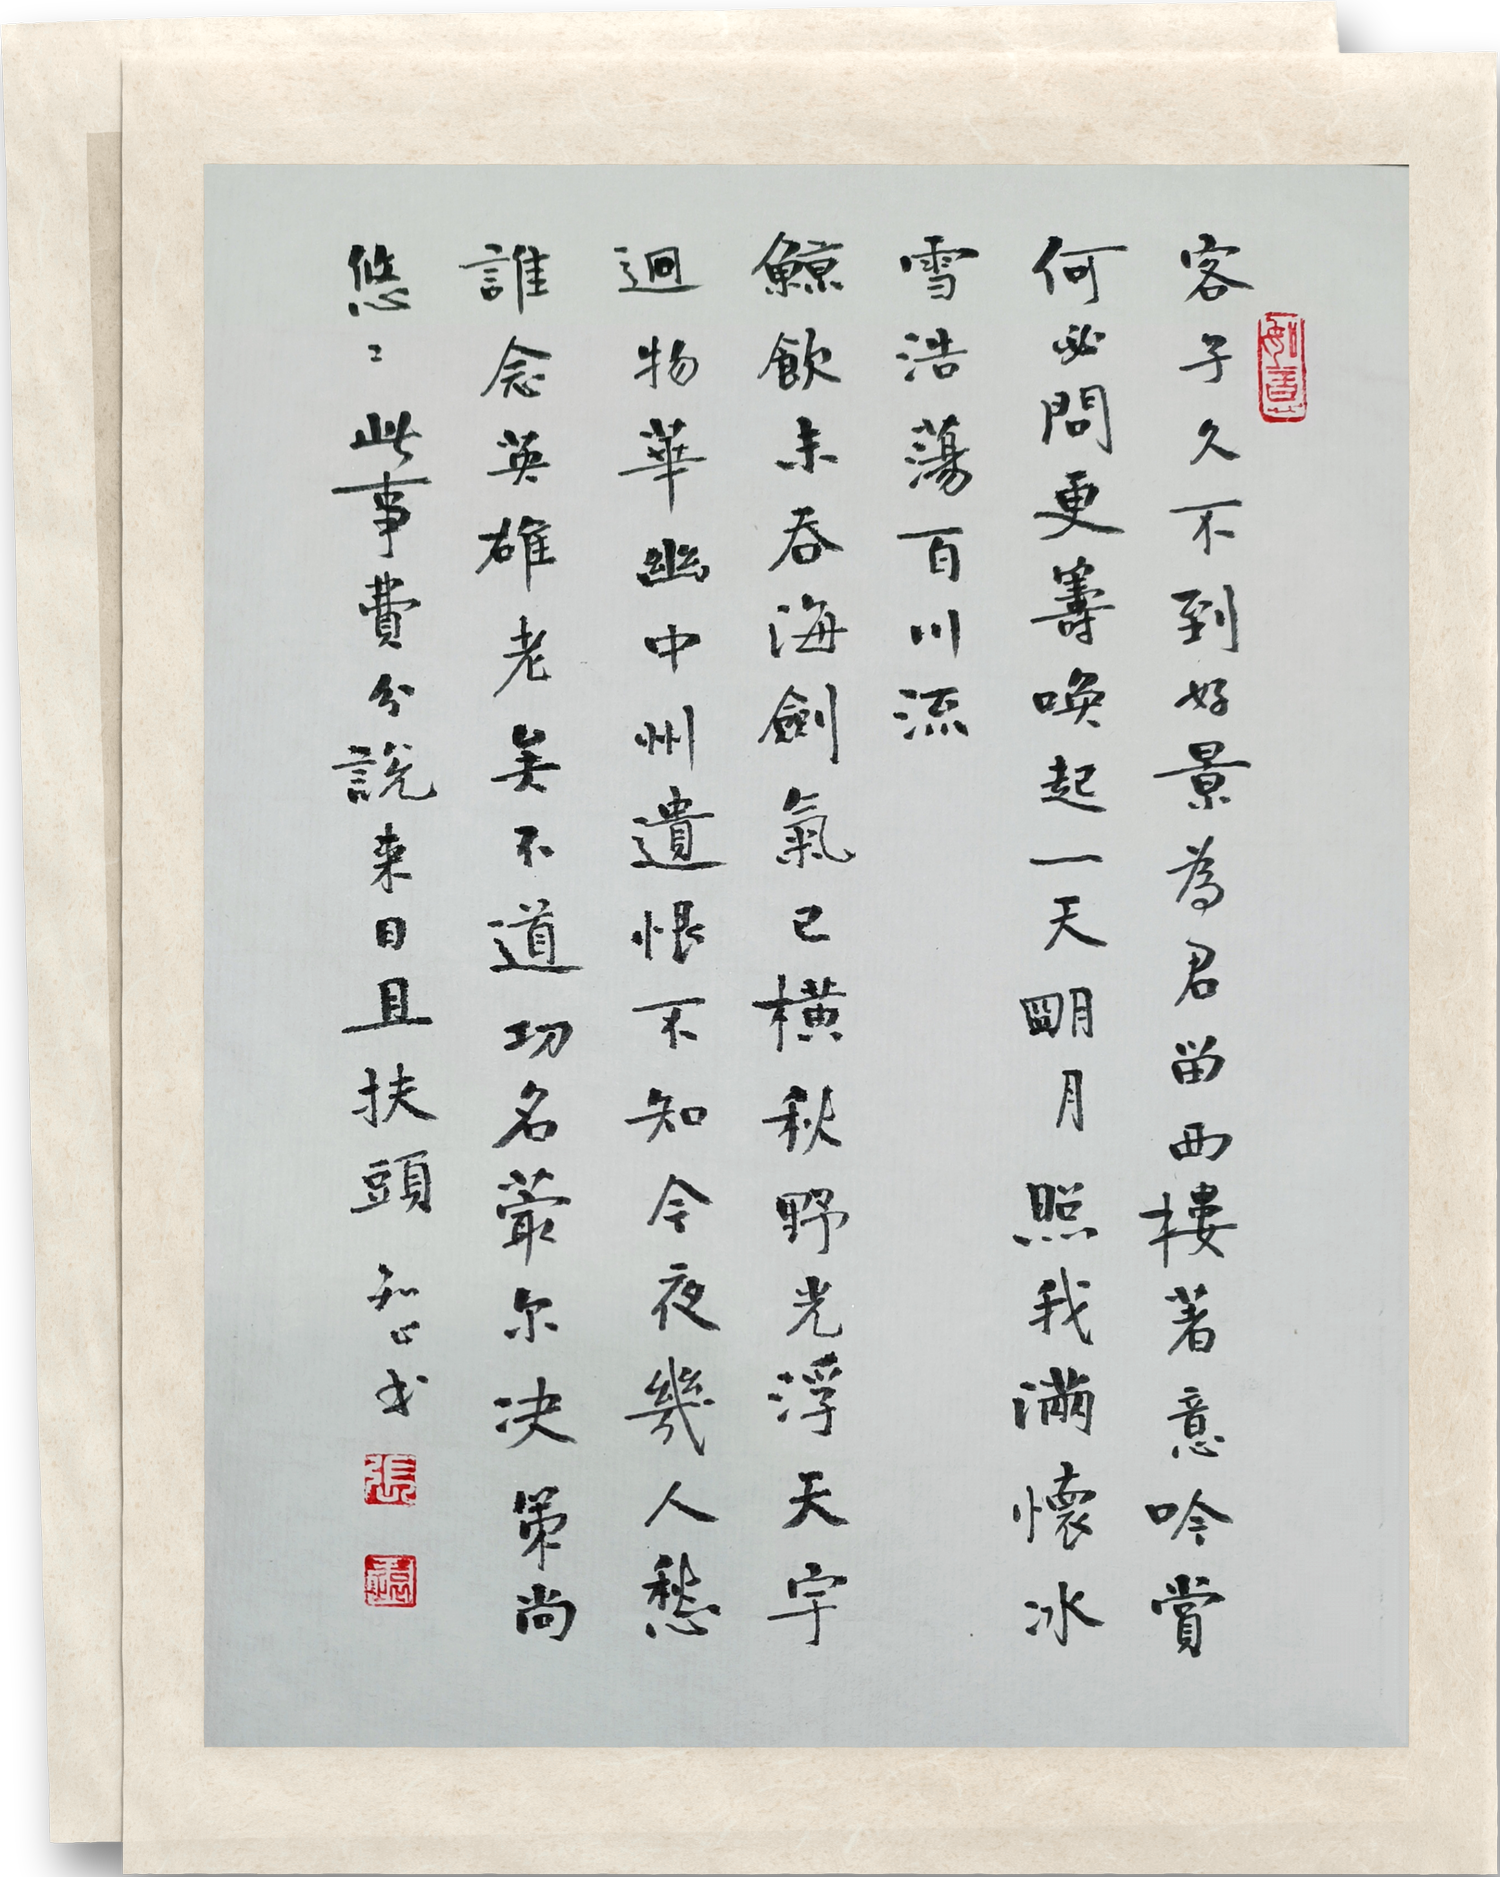 客子久不到好景為君留西樓著意吟賞
何必問更籌喚起一天明月照我滿懷冰
雪浩蕩百川流
鯨飲未吞海劍氣已橫秋野光浮天宇
迥物華幽中州遺恨不知今夜幾人愁
誰念英雄老矣不道功名蕞尔决策尚
悠〻此事費分說来日且扶頭
如意
張